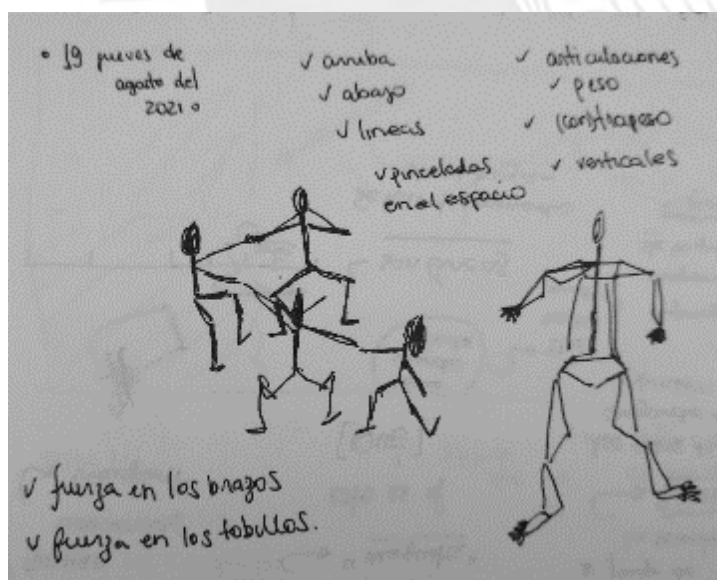 • 19 jueves de
agosto del
2021 •
✓ arriba
✓ abajo
✓ lineas
✓ pinceladas
en el espacio
✓ articulaciones
✓ peso
✓ (contrapeso
✓ verticales
✓ fuerza en los brazos
✓ fuerza en los tobillos.